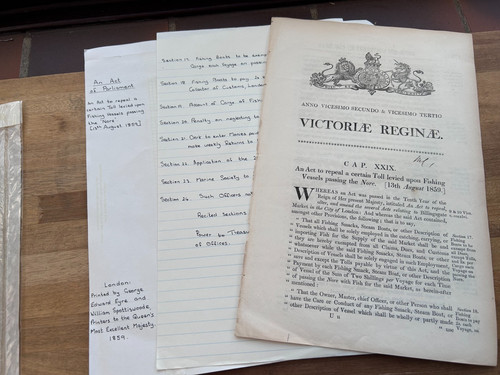 An Act
of Parliament
An Act to repeal a
certain Toll levied upon
Fishing Vessels passing
the 'Nore'.
[13th August 1859]
London:
Printed by George
Edward Eyre and
William Spottiswoode,
Printers to the Queen's
Most Excellent Majesty.
1859.
Section 17. Fishing Boats to be exemp
Cargo each Voyage on passin
Section 18. Fishing Boats to pay
Collector of Customs, London
Section 19. Account of Cargo of Fish
Section 20. Penalty on neglecting to
Section 21. Clerk to enter Monies paid
make weekly Returns to
Section 22. Application of the
Section 23. Marine Society to
Section 24. Such Officers
Recited Sections
Power to Treasu
of Offices.
ANNO VICESIMO SECUNDO & VICESIMO TERTIO
VICTORIÆ REGINÆ.
CAP. XXIX.
An Act to repeal a certain Toll levied upon Fishing
Vessels passing the Nore. [13th August 1859.]
WHEREAS an Act was passed in the Tenth Year of the
Reign of Her present Majesty, intituled An Act to repeal,
alter, and amend the several Acts relating to Billingsgate
Market in the City of London: And whereas the said Act contained,
amongst other Provisions, the following; that is to say,
That all Fishing Smacks, Steam Boats, or other Description of
Vessels which shall be solely employed in the catching, carrying, or
importing Fish for the Supply of the said Market shall be and
they are hereby exempted from all Claims, Dues, and Customs
whatsoever while the said Fishing Smacks, Steam Boats, or other
Description of Vessels shall be solely engaged in such Employment,
save and except the Tolls payable by virtue of this Act, and the
Payment by each Fishing Smack, Steam Boat, or other Description
of Vessel of the Sum of Two Shillings per Voyage for each Time
of passing the Nore with Fish for the said Market, as herein-after
mentioned:
That the Owner, Master, chief Officer, or other Person who shall
have the Care or Conduct of any Fishing Smack, Steam Boat, or
other Description of Vessel which shall be wholly or partly made
U u
use